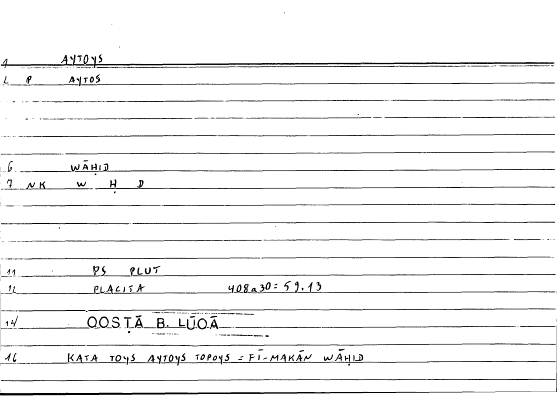 1 AYTOYS
L P AYTOS
6 WĀḤID
7 NK W Ḥ D
11 PS PLUT
12 PLACITA 408a30=59.13
14 QOSṬĀ B. LŪQĀ
16 KATA TOYS AYTOYS TOPOYS = FĪ-MAKĀN WĀḤID